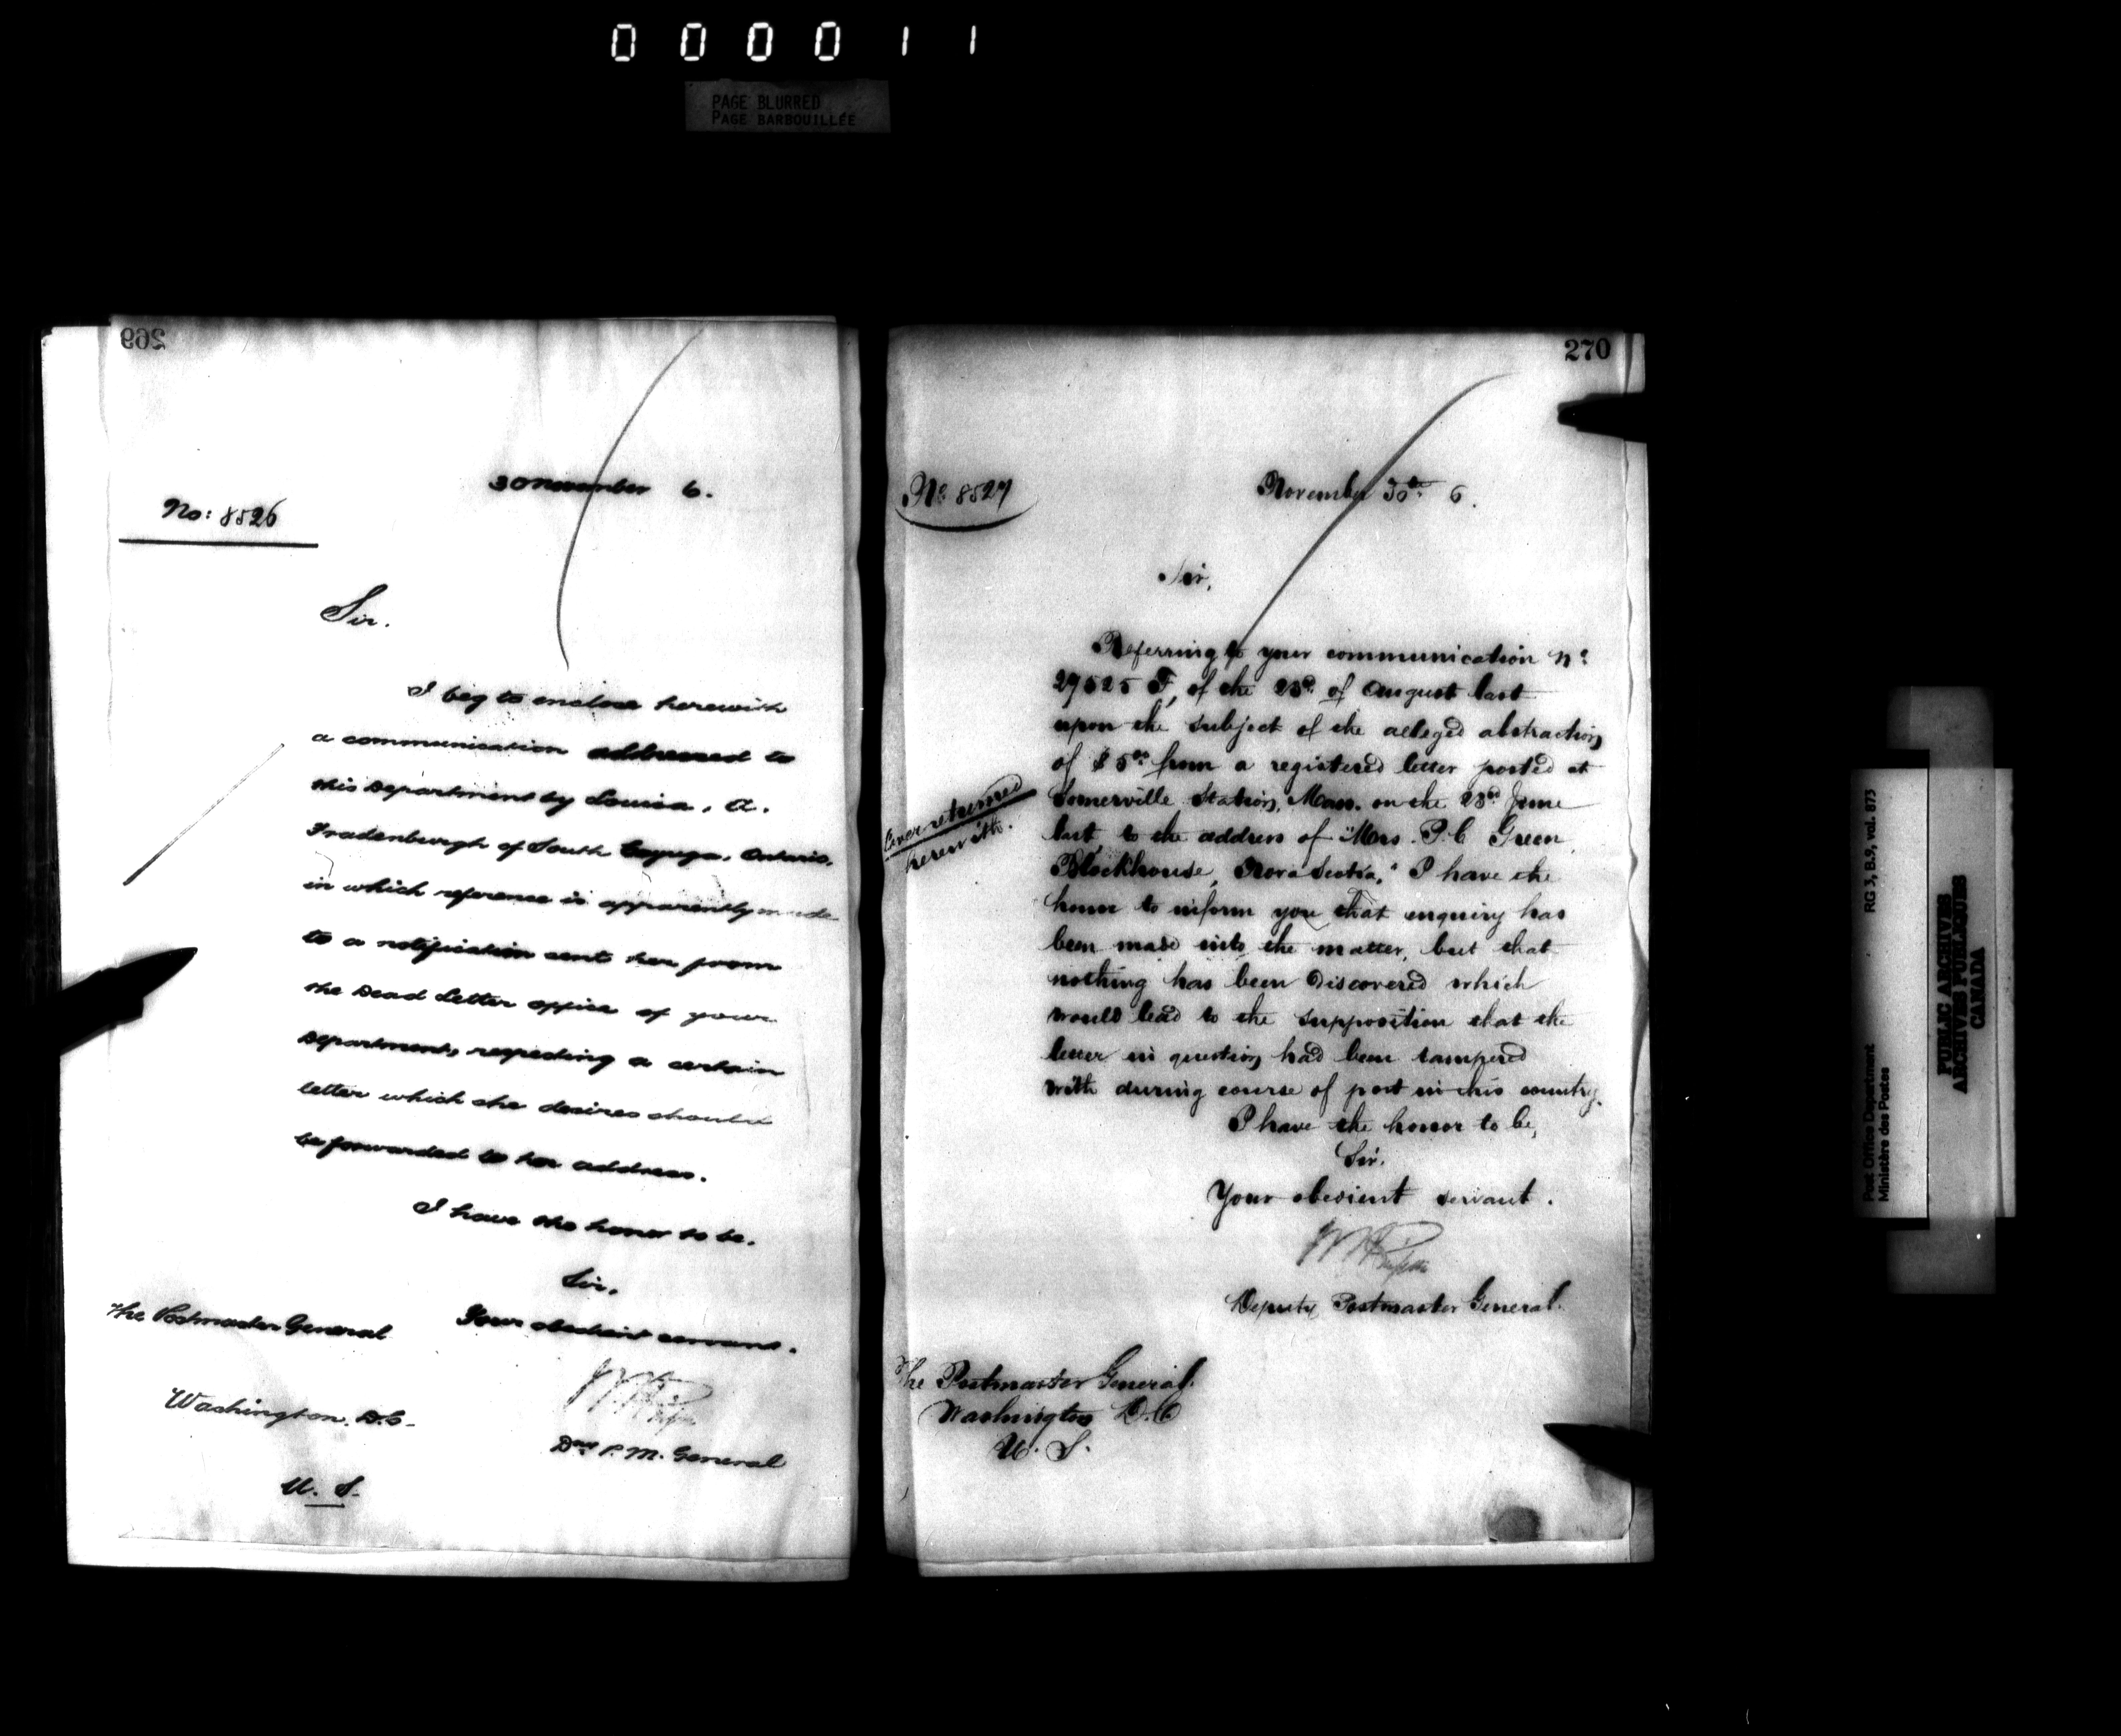 000011
PAGE BLURRED
PAGE BARBOUILLÉE
269
30 November 6.
No: 8526
Sir.
I beg to enclose herewith
a communication addressed to
this Department by Louisa, A.
Fradenburgh of South Cayuga, Ontario,
in which reference is apparently made
to a notification sent her from
the Dead Letter office of your
Department, respecting a certain
letter which she desires should
be forwarded to her address.
I have the honor to be.
Sir.
Your obedient servant.
Dy P. M. General
The Postmaster General
Washington. D.C.
U. S.
270
No 8527
November 30th 6.
Sir,
Referring to your communication No
27525 F, of the 23rd of August last
upon the subject of the alleged abstraction
of $5.00 from a registered letter posted at
Somerville Station, Mass. on the 23rd June
last, to the address of "Mrs. P. C Green,
Blockhouse, Nova Scotia," I have the
honor to inform you that enquiry has
been made into the matter, but that
nothing has been discovered which
would lead to the supposition that the
letter in question had been tampered
with during course of post in this country.
Cover returned
herewith.
I have the honor to be,
Sir.
Your obedient servant.
Deputy Postmaster General.
The Postmaster General.
Washington D.C
U. S.
Post Office Department
Ministère des Postes
RG 3, B.9, vol. 873
PUBLIC ARCHIVES
ARCHIVES PUBLIQUES
CANADA